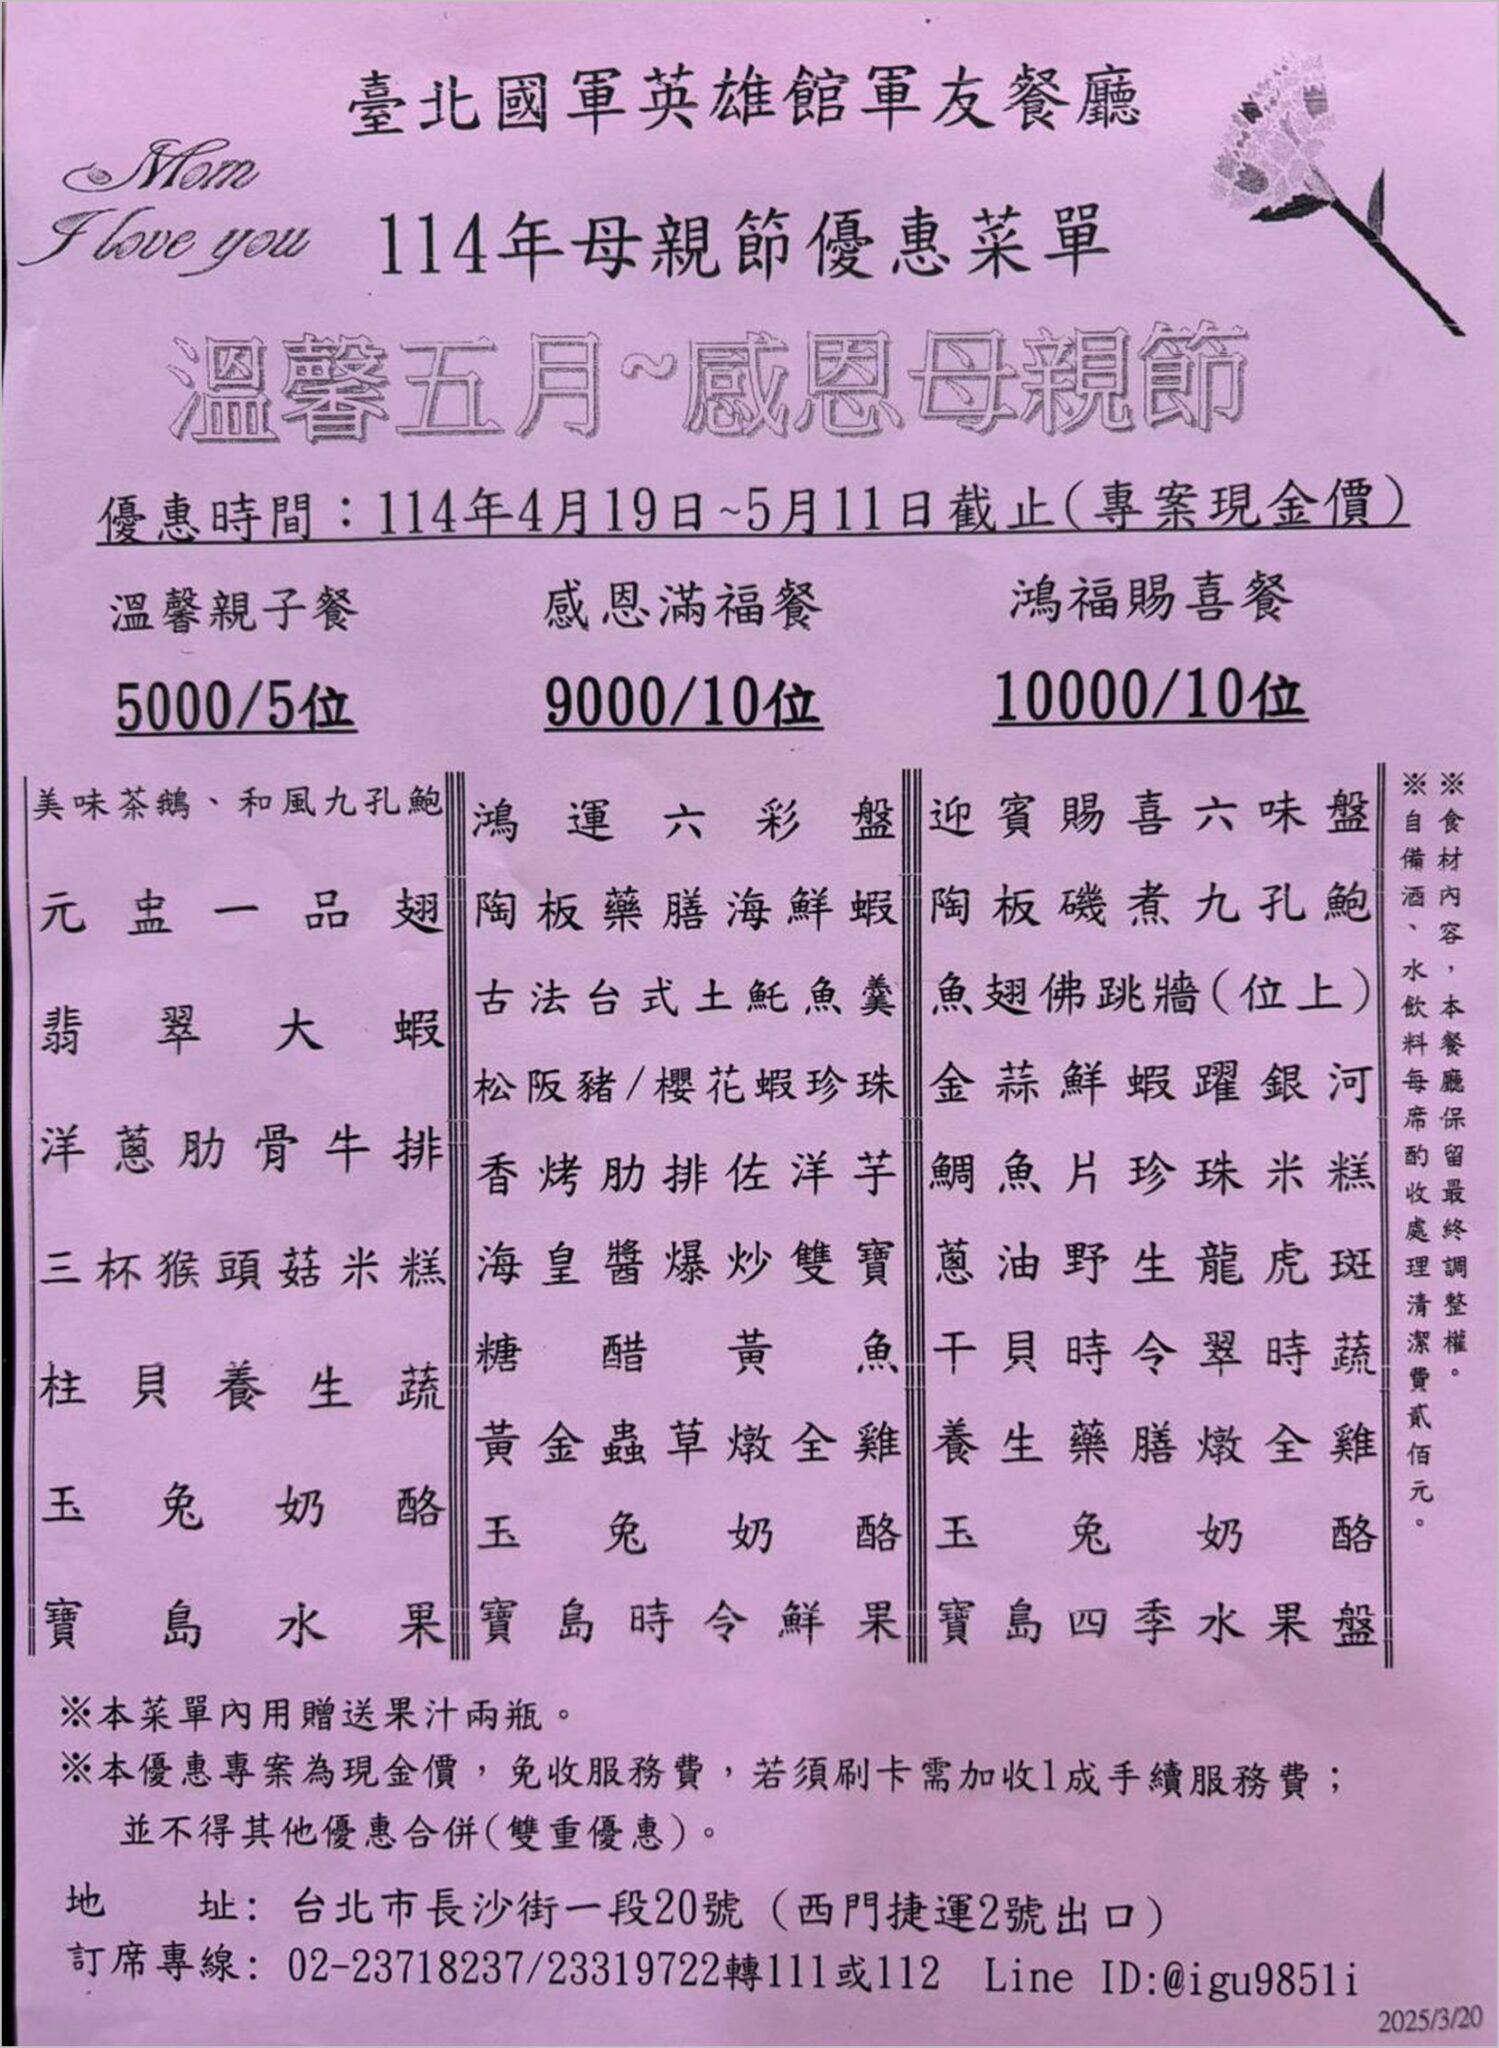 臺北國軍英雄館軍友餐廳
Mom
I love you
114年母親節優惠菜單
溫馨五月~感恩母親節
優惠時間：114年4月19日~5月11日截止(專案現金價)
溫馨親子餐
5000/5位
美味茶鵝、和風九孔鮑
元盅一品翅
翡翠大蝦
洋蔥肋骨牛排
三杯猴頭菇米糕
柱貝養生蔬
玉兔奶酪
寶島水果
感恩滿福餐
9000/10位
鴻運六彩盤
陶板藥膳海鮮蝦
古法台式土魠魚羹
松阪豬/櫻花蝦珍珠
香烤肋排佐洋芋
海皇醬爆炒雙寶
糖醋黃魚
黃金蟲草燉全雞
玉兔奶酪
寶島時令鮮果
鴻福賜喜餐
10000/10位
迎賓賜喜六味盤
陶板磯煮九孔鮑
魚翅佛跳牆(位上)
金蒜鮮蝦躍銀河
鯛魚片珍珠米糕
蔥油野生龍虎斑
干貝時令翠時蔬
養生藥膳燉全雞
玉兔奶酪
寶島四季水果盤
※食材內容，本餐廳保留最終調整權。
※自備酒、水飲料每席酌收處理清潔費貳佰元。
※本菜單內用贈送果汁兩瓶。
※本優惠專案為現金價，免收服務費，若須刷卡需加收1成手續服務費；
並不得其他優惠合併(雙重優惠)。
地　　址: 台北市長沙街一段20號 (西門捷運2號出口)
訂席專線: 02-23718237/23319722轉111或112 Line ID:@igu9851i
2025/3/20